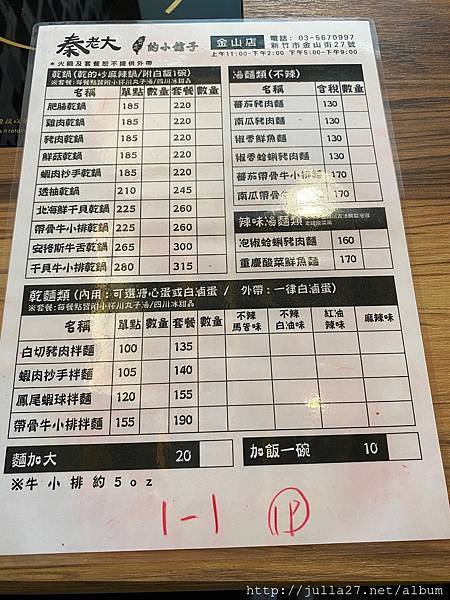 秦老大 的小館子 金山店
電話: 03-5670997
新竹市金山街27號
上午11:00-下午2:00 下午5:00-下午9:00
*火鍋及套餐恕不提供外帶
乾鍋(乾的吵麻辣鍋/附白飯1碗)
※套餐:每餐點醬附小杯川丸子湯/四川冰甜品
名稱 單點 數量 套餐 數量
肥腸乾鍋 185 220
雞肉乾鍋 185 220
豬肉乾鍋 185 220
鮮菇乾鍋 185 220
蝦肉抄手乾鍋 185 220
透抽乾鍋 210 245
北海鮮干貝乾鍋 225 260
帶骨牛小排乾鍋 225 260
安格斯牛舌乾鍋 265 300
干貝牛小排乾鍋 280 315
湯麵類(不辣)
名稱 含稅 數量
蕃茄豬肉麵 130
南瓜豬肉麵 130
椒香鮮魚麵 130
椒香蛤蜊豬肉麵 130
蕃茄帶骨牛小排麵 170
南瓜帶骨牛小排麵 170
辣味湯麵類
泡椒蛤蜊豬肉麵 160
重慶酸菜鮮魚麵 170
乾麵類(內用:可選溏心蛋或白滷蛋 / 外帶:一律白滷蛋)
※套餐:每餐點附小杯川丸子湯/四川冰甜品
名稱 單點 數量 套餐 數量 不辣馬告味 不辣白油味 紅油辣味 麻辣味
白切豬肉拌麵 100 135
蝦肉抄手拌麵 105 140
鳳尾蝦球拌麵 120 155
帶骨牛小排拌麵 155 190
麵加大 20
加飯一碗 10
※牛小排約5oz
1-1 1P
http://julla27.net/album